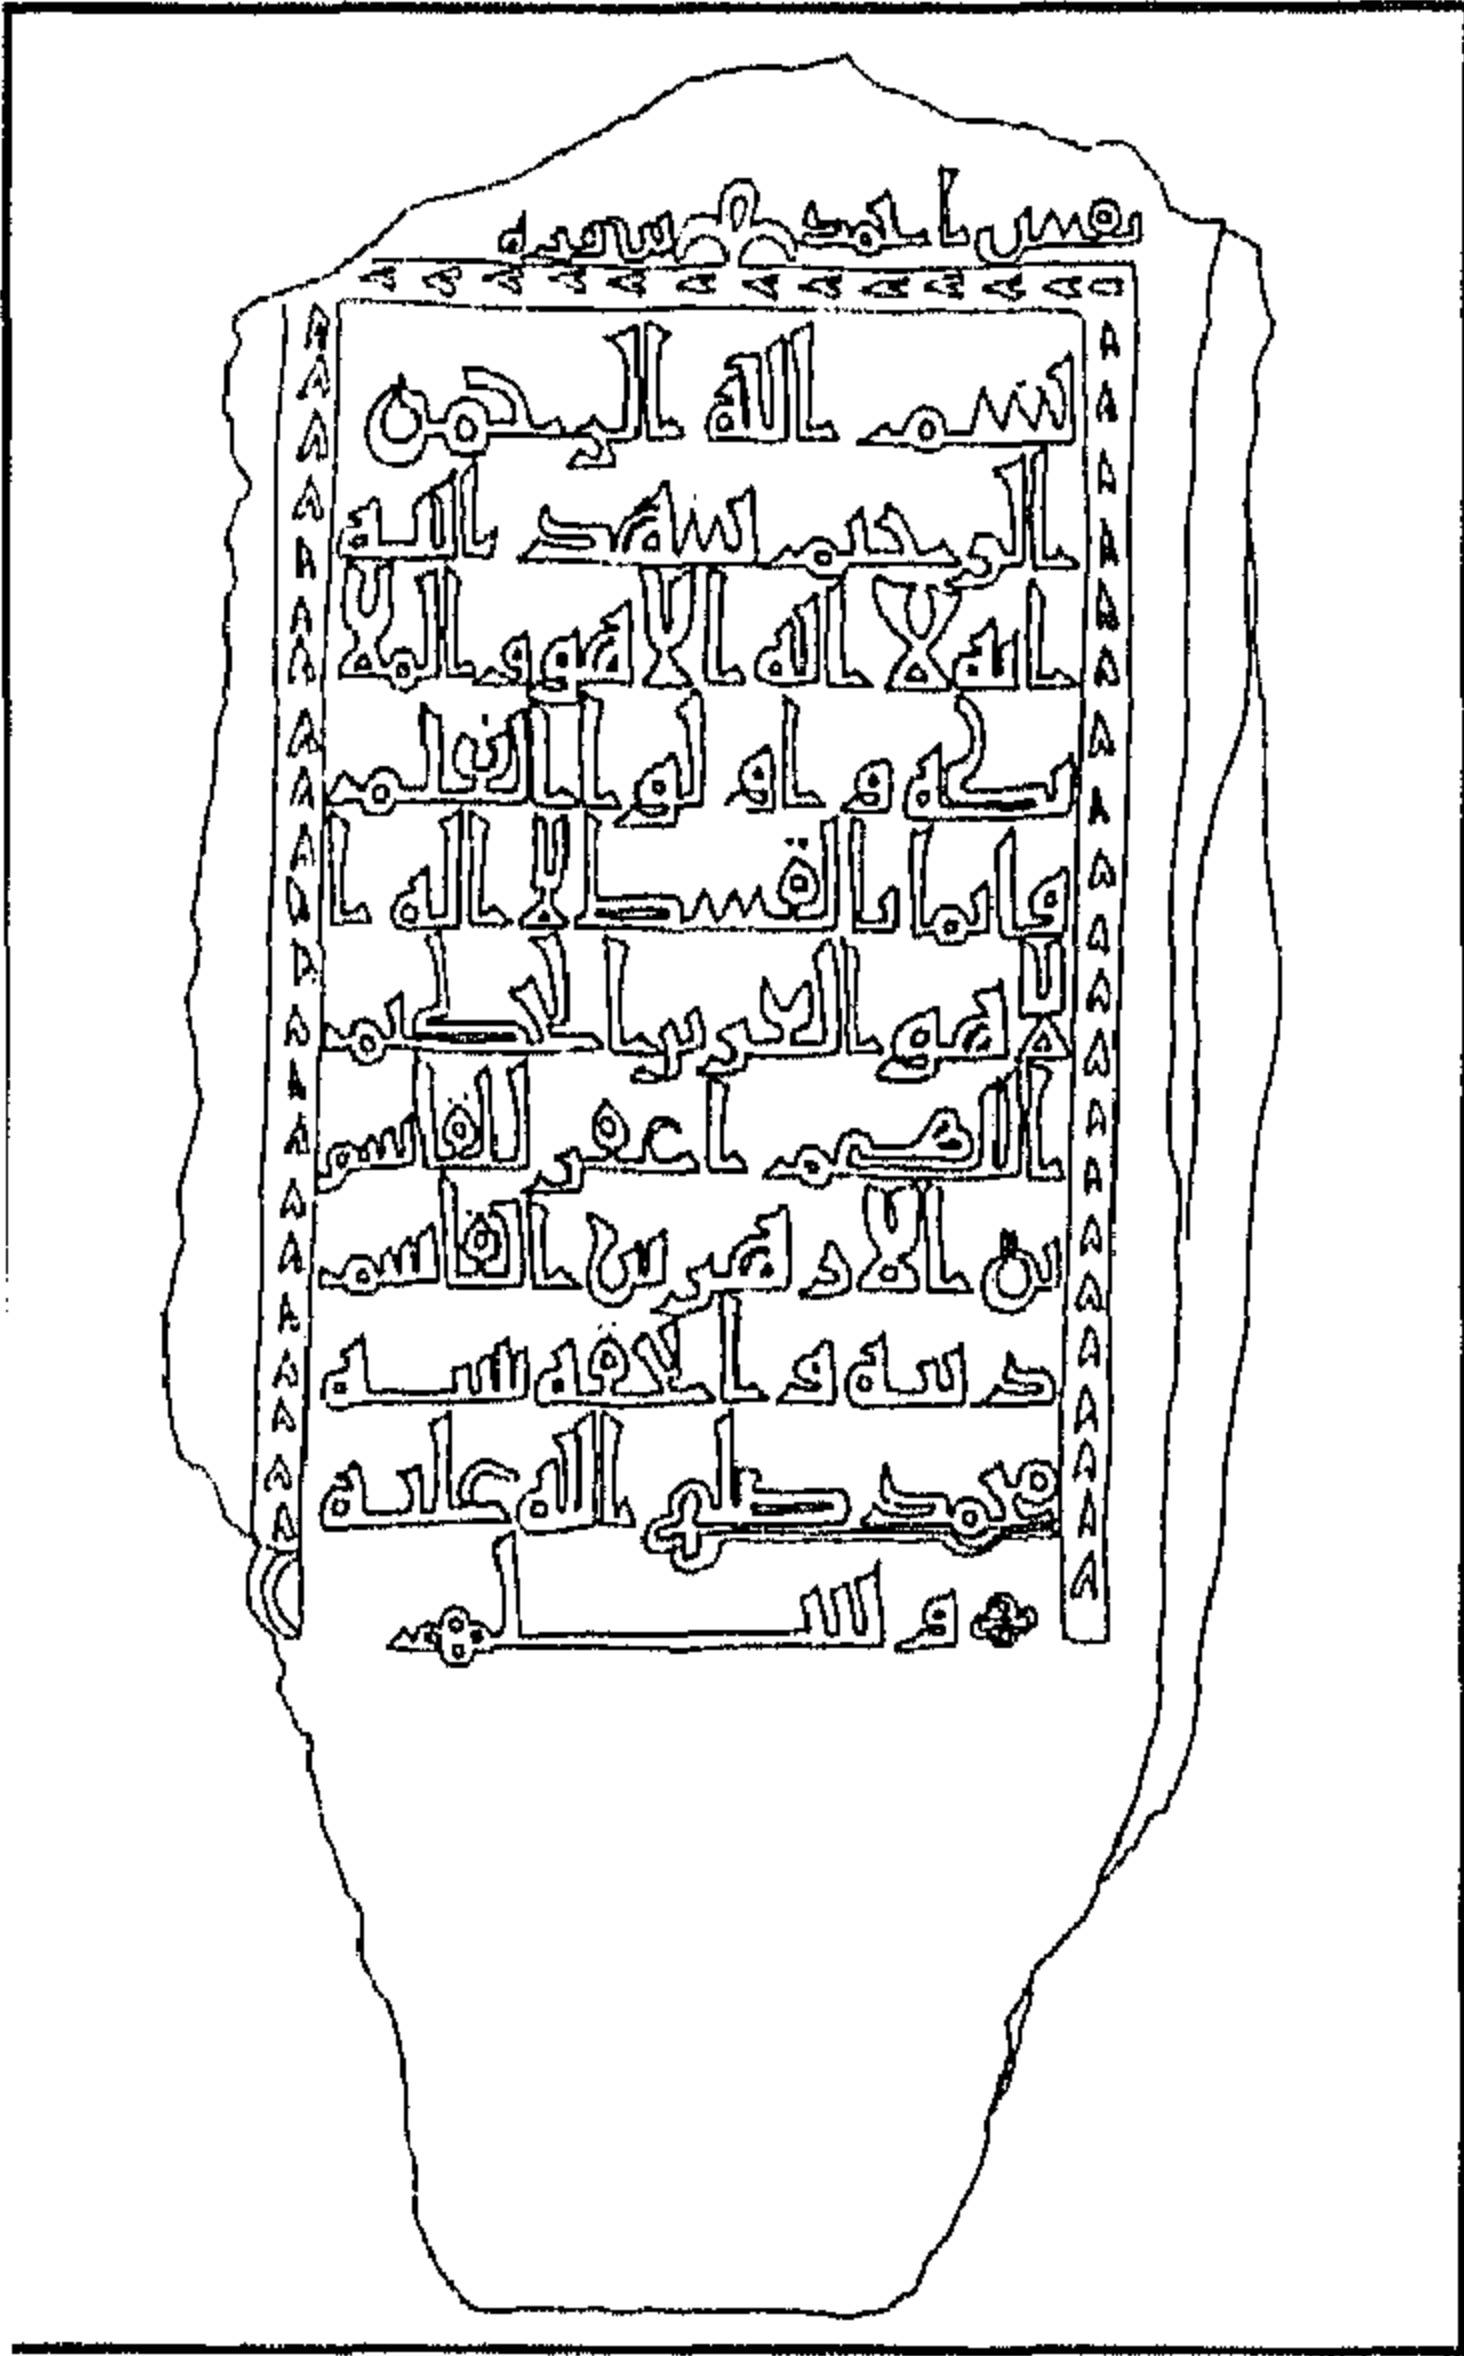 نقش احمد
بسم الله الرحمن
الرحيم شهد الله
انه لا اله الا هو والملا
ئكة و اولوا العلم
قائما بالقسط لا اله ا
لا هو العزيز الحكيم
اللهم اغفر للقاسم
بن الازهر بن القاسم
ذنبه والحقه بنبيه
محمد صلى الله عليه
و سلم